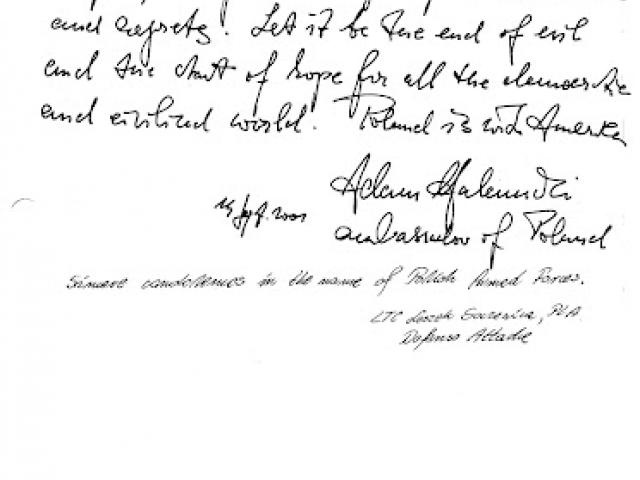 and regrets! Let it be the end of evil
and the start of hope for all the democratic
and civilized world. Poland is with America
Adam
14 Sept. 2001
ambassador of Poland
Sincere condolences in the name of Polish Armed Forces.
LTC Leszek
Defense Attaché